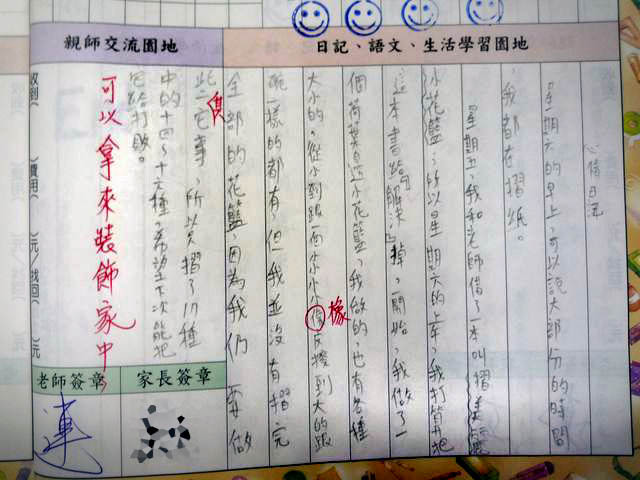 親師交流園地
日記、語文、生活學習園地
心情日記
星期六的早上,可以說大部份的時間
,我都在摺紙。
星期五,我和老師借了一本叫摺美麗
小花籃,所以星期六的上午,我打算把
這本書給「解決」掉,一開始,我做了一
個荷葉邊小花籃,我做的,也有各種
大小的。從小到跟一面小小小橡皮擦到大的跟
碗一樣的都有,但我並沒有摺完
全部的花籃,因為我們要做
此其它事,所以只摺了17種
中的十四~十六種,希望下次能把
它給打敗。
可以拿來裝飾家中
橡
其
費用(
)元/找回(
)元
老師簽章
家長簽章
連